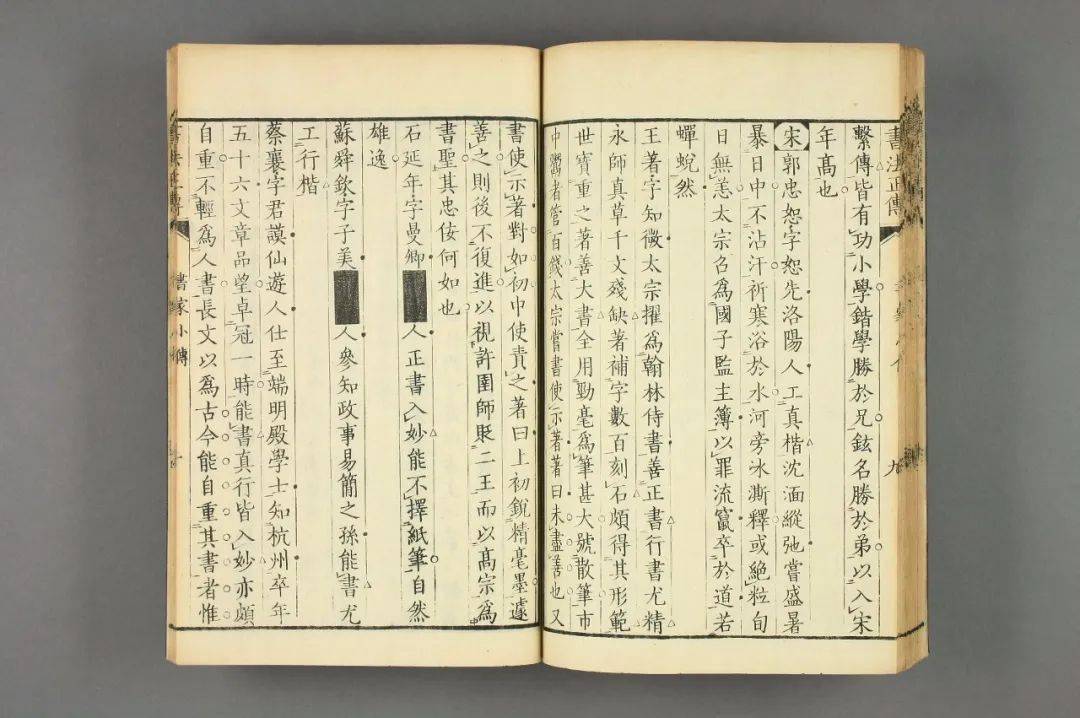 書法正傳
九
繫傳皆有功小學鍇學勝於兄鉉名勝於弟以入宋
年髙也
宋郭忠恕字恕先洛陽人工真楷沈湎縱弛嘗盛暑
暴日中不沾汗祈寒浴於水河旁冰澌釋或絕粒旬
日無恙太宗召為國子監主簿以罪流竄卒於道若
蟬蛻然
王著字知微太宗擢為翰林侍書善正書行書尤精
永師真草千文殘缺著補字數百刻石頗得其形範
世寶重之著善大書全用勁毫為筆甚大號散筆市
中鬻者管百錢太宗嘗書使示著著曰未盡善也又
書使示著對如初中使責之著曰上初銳精毫墨遽
善之則後不復進以視許圉師貶二王而以髙宗為
書聖其忠佞何如也
石延年字曼卿人正書入妙能不擇紙筆自然
雄逸
蘇舜欽字子美人參知政事易簡之孫能書尤
工行楷
蔡襄字君謨仙遊人仕至端明殿學士知杭州卒年
五十六文章品望卓冠一時能書真行皆入妙亦頗
自重不輕為人書長文以為古今能自重其書者惟
書家小傳